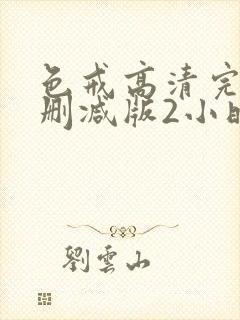 色戒高清完
删减版2小
劉雲山